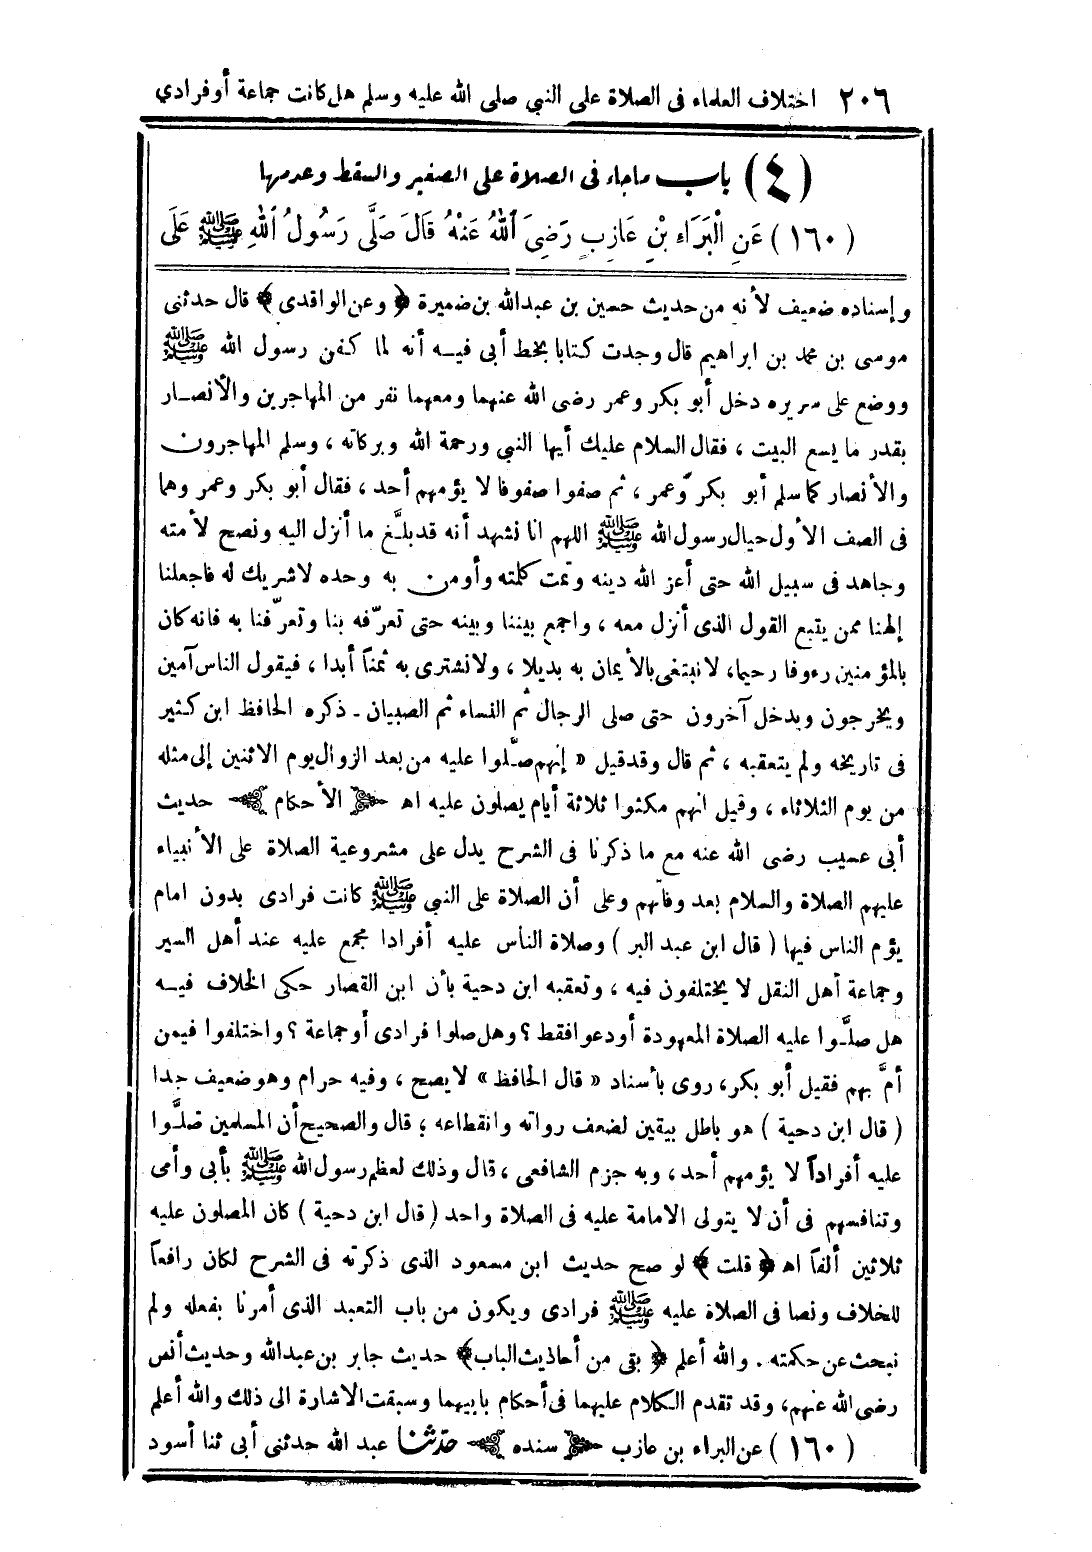 ٢٠٦ اختلاف العلماء فى الصلاة على النبي صلى الله عليه وسلم هل كانت جماعة أوفرادي
(٤) باب ماجاء فى الصلاة على الصغير والسقط وعدمها
(١٦٠) عَنِ الْبَرَاءِ بْنِ عَازِبٍ رَضِىَ اللهُ عَنْهُ قَالَ صَلَّى رَسُولُ اللهِ ﷺ عَلَى
وإسناده ضعيف لأنه من حديث حسين بن عبدالله بن ضميرة ﴿وعن الواقدى﴾ قال حدثنى
موسى بن محمد بن ابراهيم قال وجدت كتابا بخط أبى فيه أنه لما كفن رسول الله ﷺ
ووضع على سريره دخل أبو بكر وعمر رضى الله عنهما ومعهما نفر من المهاجرين والأنصار
بقدر ما يسع البيت ، فقال السلام عليك أيها النبي ورحمة الله وبركاته ، وسلم المهاجرون
والأنصار كما سلم أبو بكر وعمر ، ثم صفوا صفوفا لا يؤمهم أحد ، فقال أبو بكر وعمر وهما
فى الصف الأول حيال رسول الله ﷺ اللهم انا نشهد أنه قد بلَّغ ما أنزل اليه ونصح لأمته
وجاهد فى سبيل الله حتى أعز الله دينه وتمت كلمته وأومن به وحده لاشريك له فاجعلنا
إلهنا ممن يتبع القول الذى أنزل معه ، واجمع بيننا وبينه حتى تعرّفه بنا وتعرّفنا به فانه كان
بالمؤمنين رءوفا رحيما، لانبتغى بالأيمان به بديلا ، ولانشترى به ثمناً أبدا ، فيقول الناس آمين
ويخرجون ويدخل آخرون حتى صلى الرجال ثم النساء ثم الصبيان ـ ذكره الحافظ ابن كثير
فى تاريخه ولم يتعقبه ، ثم قال وقدقيل « إنهم صلّوا عليه من بعد الزوال يوم الاثنين إلى مثله
من يوم الثلاثاء ، وقيل انهم مكثوا ثلاثة أيام يصلون عليه اهـ ﴿الأحكام﴾ حديث
أبى عسيب رضى الله عنه مع ما ذكرنا فى الشرح يدل على مشروعية الصلاة على الأنبياء
عليهم الصلاة والسلام بعد وفاتهم وعلى أن الصلاة على النبي ﷺ كانت فرادى بدون امام
يؤم الناس فيها (قال ابن عبد البر) وصلاة الناس عليه أفرادا مجمع عليه عند أهل السير
وجماعة أهل النقل لا يختلفون فيه ، وتعقبه ابن دحية بأن ابن القصار حكى الخلاف فيه
هل صلَّوا عليه الصلاة المعهودة أودعوا فقط ؟ وهل صلوا فرادى أوجماعة ؟ واختلفوا فيمن
أمَّ بهم فقيل أبو بكر، روى بأسناد « قال الحافظ » لايصح ، وفيه حرام وهو ضعيف جدا
(قال ابن دحية) هو باطل بيقين لضعف رواته وانقطاعه ؛ قال والصحيح أن المسلمين صلَّوا
عليه أفراداً لا يؤمهم أحد ، وبه جزم الشافعى ، قال وذلك لعظم رسول الله ﷺ بأبى وأمى
وتنافسهم فى أن لا يتولى الامامة عليه فى الصلاة واحد (قال ابن دحية) كان المصلون عليه
ثلاثين ألفاً اهـ ﴿قلت﴾ لو صح حديث ابن مسعود الذى ذكرته فى الشرح لكان رافعاً
للخلاف ونصا فى الصلاة عليه ﷺ فرادى ويكون من باب التعبد الذى أمرنا بفعله ولم
نبحث عن حكمته . والله أعلم ﴿بقى من أحاديث الباب﴾ حديث جابر بن عبدالله وحديث أنس
رضى الله عنهم، وقد تقدم الكلام عليهما فى أحكام بابيهما وسبقت الاشارة الى ذلك والله أعلم
(١٦٠) عن البراء بن عازب ﴿سنده﴾ حدّثنا عبد الله حدثنى أبى ثنا أسود